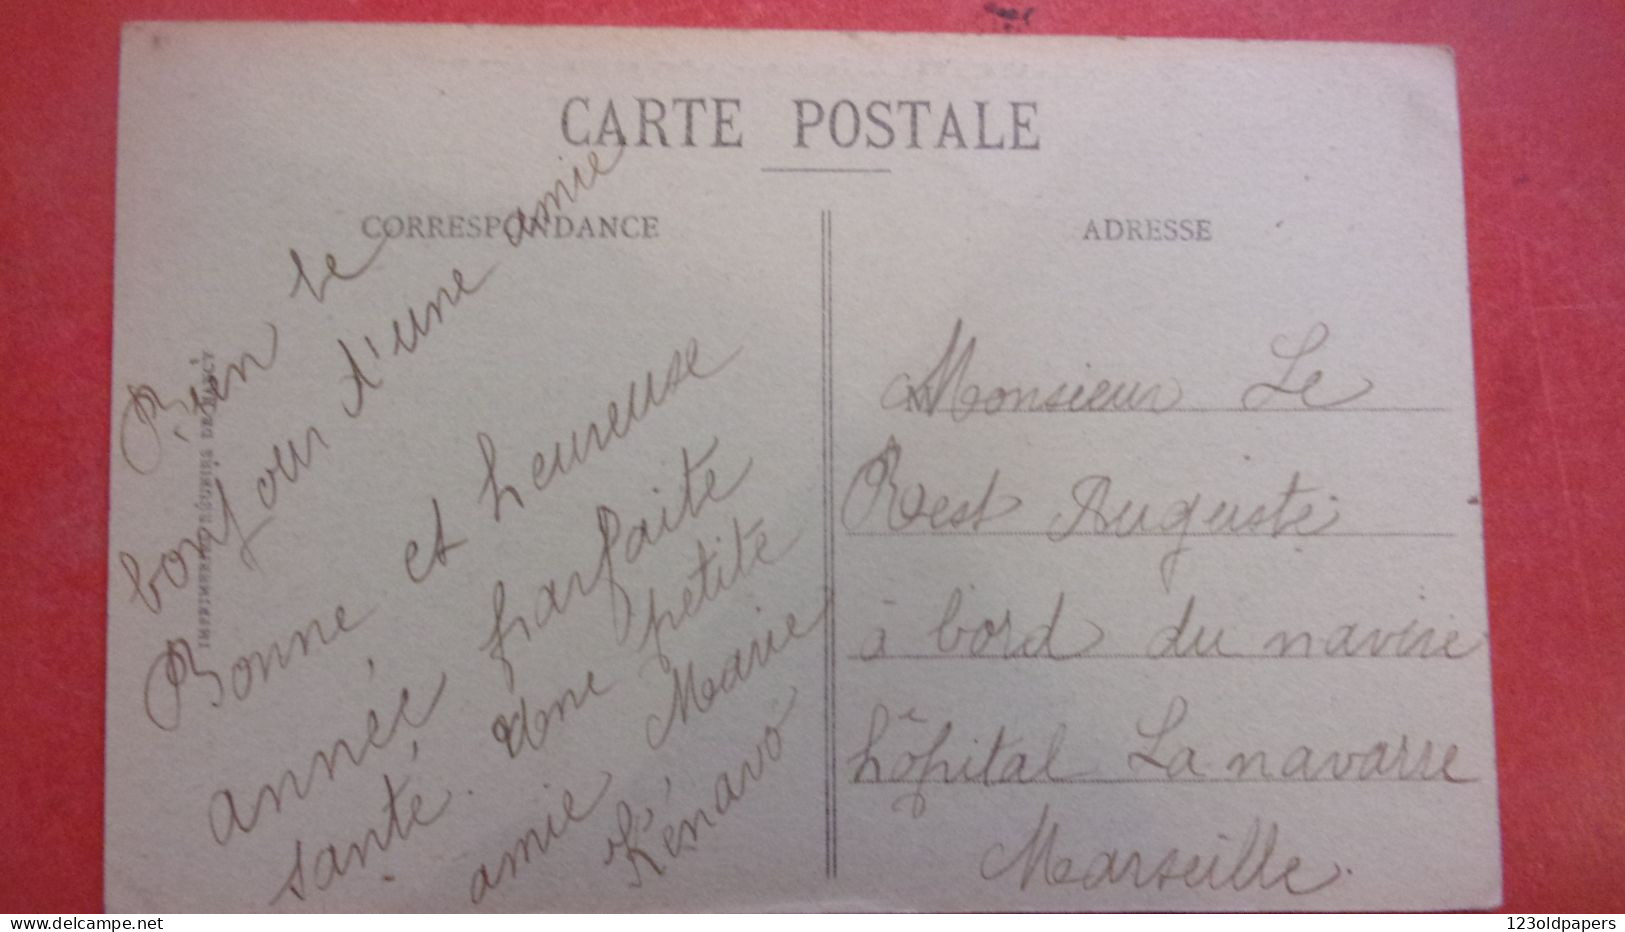 CARTE POSTALE
CORRESPONDANCE
ADRESSE
IMPRIMERIES RÉUNIES DE NANCY
Bien le
bonjour d'une amie
Bonne et heureuse
année parfaite
santé. Une petite
amie Marie
Kénavo
Monsieur Le
Rest Auguste
à bord du navire
hôpital La navarre
Marseille.
123oldpapers